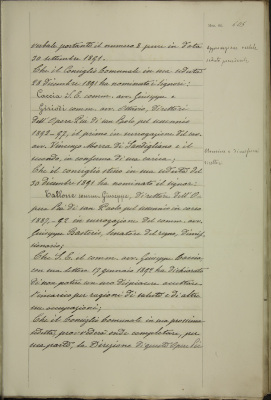 verbale portante il numero 2 pure in data
30 settembre 1891.
Che il Consiglio Comunale in sua seduta
28 Dicembre 1891 ha nominato i signori:
Caccia S. E. comm. avv. Giuseppe e
comm. avv. Direttori
dell'Opera Pia di San Paolo pel quinquennio
1892-97, il primo in surrogazione del
avv. Vincenzo e il
secondo, in conferma di sua carica;
Che il consiglio stesso in sua seduta del
30 Dicembre 1891 ha nominato il signor:
comm. Giuseppe, Direttore dell'O-
pera Pia di San Paolo pel
1887-92 in surrogazione del comm. avv.
Giuseppe Senatore del regno, dimis-
sionario;
Che S. E. il comm. avv. Giuseppe Caccia
con sua lettera 17 gennaio 1892 ha dichiarato
di non potere con suo dispiacere accettare
l'incarico per ragioni di salute e di altre
sue occupazioni;
Che il Consiglio Comunale in sua prossima
seduta, provvederà onde completare, per
sua parte, la Direzione di quest'Opera Pia
Approvazione verbale
seduta precedente.
Nomina e conferma